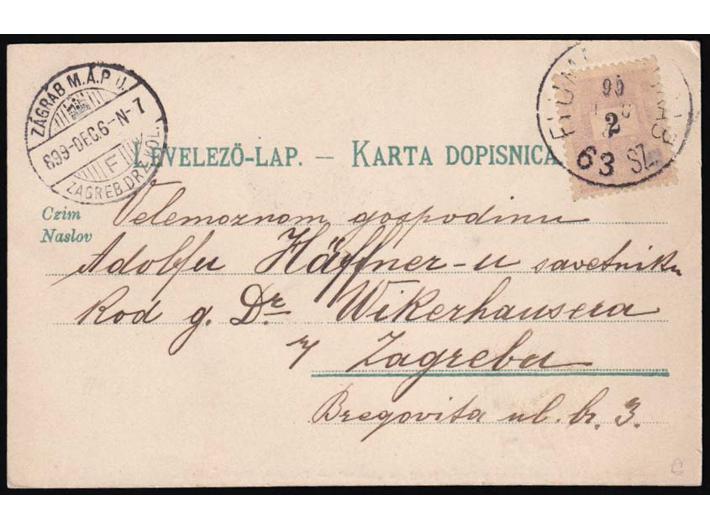 ZÁGRÁB M.Á.P.U.
899-DEC.6-N-7
F
ZAGREB.DRŽ.KOL.
99
2
63 SZ.
LEVELEZŐ-LAP. — KARTA DOPISNICA.
Czim
Naslov
Velemoznom gospodinu
Adolfu Häffner-u savetniku
kod g. Dr. Wikerhausera
Zagreba
Bregovita ul. br. 3.